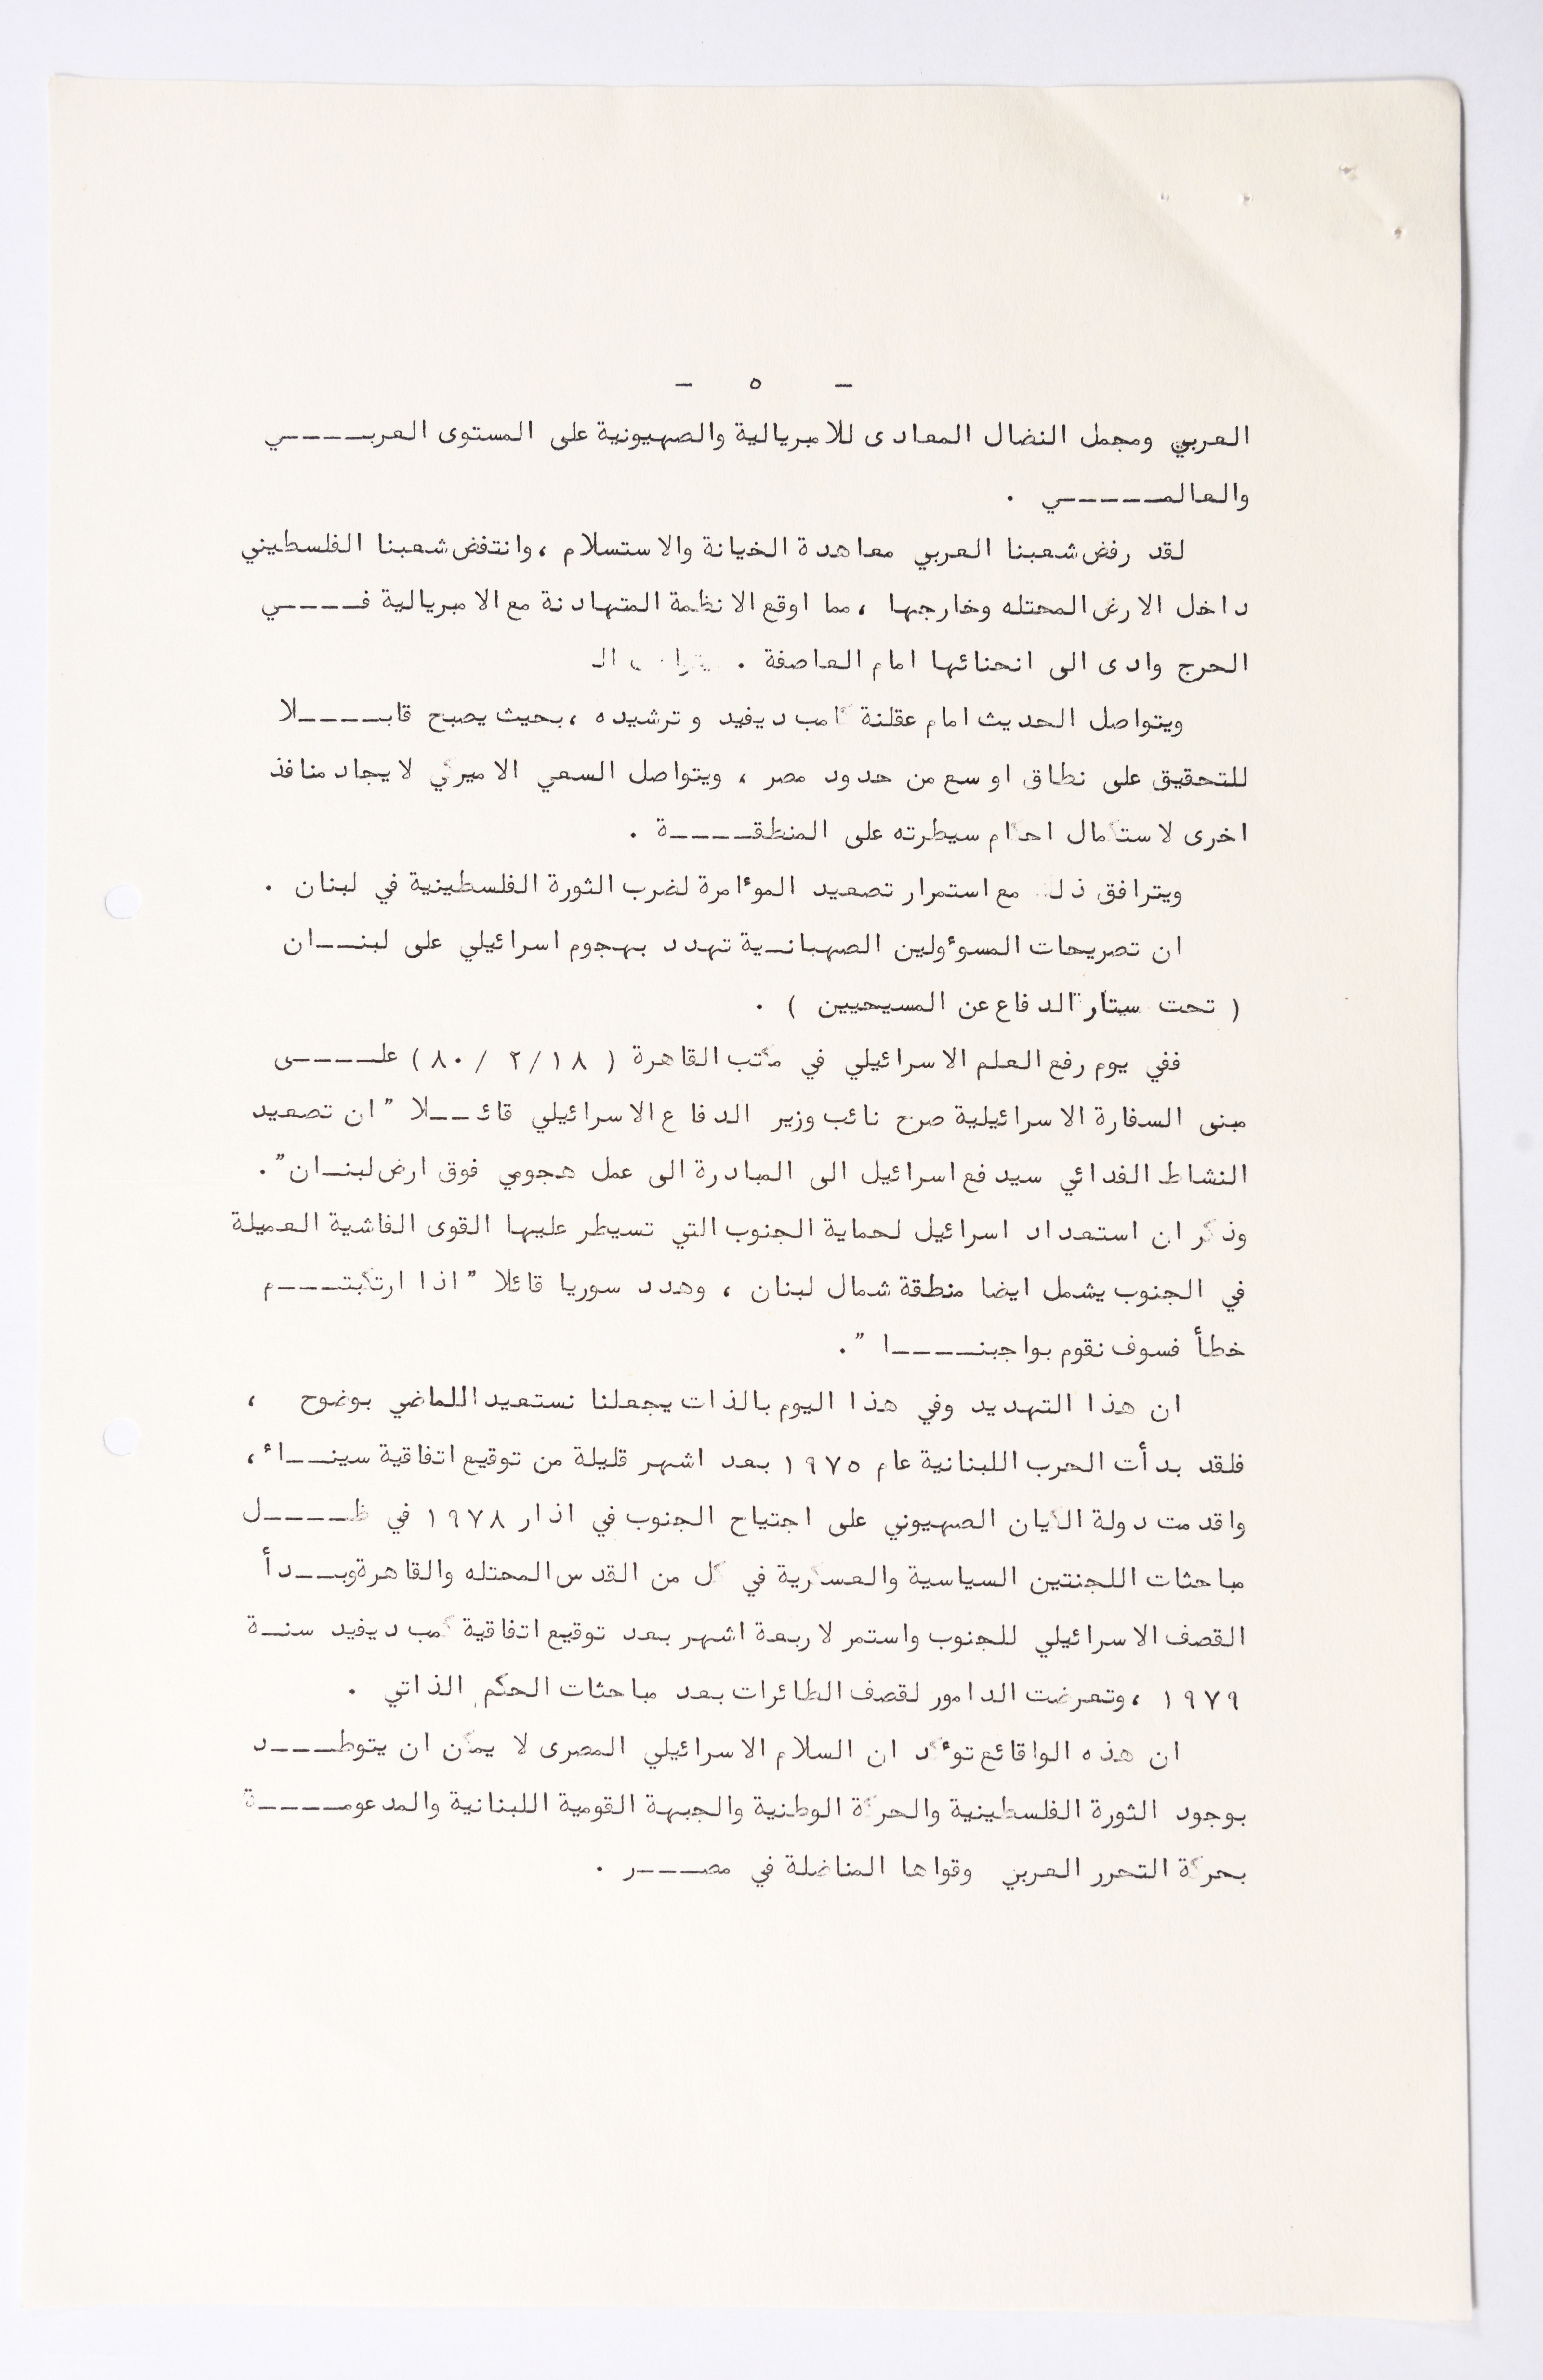 - ٥ -
العربي ومجمل النضال المعادى للامبريالية والصهيونية على المستوى العربــــي
والعالمـــــي .
لقد رفض شعبنا العربي معاهدة الخيانة والاستسلام ، وانتفض شعبنا الفلسطيني
داخل الارض المحتله وخارجها ، مما اوقع الانظمة المتهادنة مع الامبريالية فــــي
الحرج وادى الى انحنائها امام العاصفة .
ويتواصل الحديث امام عقلنة كامب ديفيد وترشيده ، بحيث يصبح قابــــلا
للتحقيق على نطاق اوسع من حدود مصر ، ويتواصل السعي الاميركي لايجاد منافذ
اخرى لاستكمال احكام سيطرته على المنطقــــة .
ويترافق ذلك مع استمرار تصعيد الموءامرة لضرب الثورة الفلسطينية في لبنان .
ان تصريحات المسوءولين الصهبانـية تهدد بهجوم اسرائيلي على لبنــان
( تحت ستار الدفاع عن المسيحيين ) .
ففي يوم رفع العلم الاسرائيلي في مكتب القاهرة ( ١٨/ ٢ / ٨٠ ) علــــى
مبنى السفارة الاسرائيلية صرح نائب وزير الدفاع الاسرائيلي قائــلا " ان تصعيد
النشاط الفدائي سيدفع اسرائيل الى المبادرة الى عمل هجومي فوق ارض لبنـان " .
وذكر ان استعداد اسرائيل لحماية الجنوب التي تسيطر عليها القوى الفاشية العميلة
في الجنوب يشمل ايضا منطقة شمال لبنان ، وهدد سوريا قائلا " اذا ارتكبتـــم
خطأ فسوف نقوم بواجبنــــا " .
ان هذا التهديد وفي هذا اليوم بالذات يجعلنا نستعيد اللماضي بوضوح ،
فلقد بدأت الحرب اللبنانية عام ١٩٧٥ بعد اشهر قليلة من توقيع اتفاقية سينــاء ،
واقدمت دولة الكيان الصهيوني على اجتياح الجنوب في اذار ١٩٧٨ في ظــــل
مباحثات اللجنتين السياسية والعسكرية في كل من القدس المحتله والقاهرة وبــدأ
القصف الاسرائيلي للجنوب واستمر لاربعة اشهر بعد توقيع اتفاقية كمب ديفيد سنـة
١٩٧٩ ، وتعرضت الدامور لقصف الطائرات بعد مباحثات الحكم الذاتي .
ان هذه الواقائع توءكد ان السلام الاسرائيلي المصرى لا يمكن ان يتوطـــد
بوجود الثورة الفلسطينية والحركة الوطنية والجبهة القومية اللبنانية والمدعومــــة
بحركة التحرر العربي وقواها المناضلة في مصـــر .